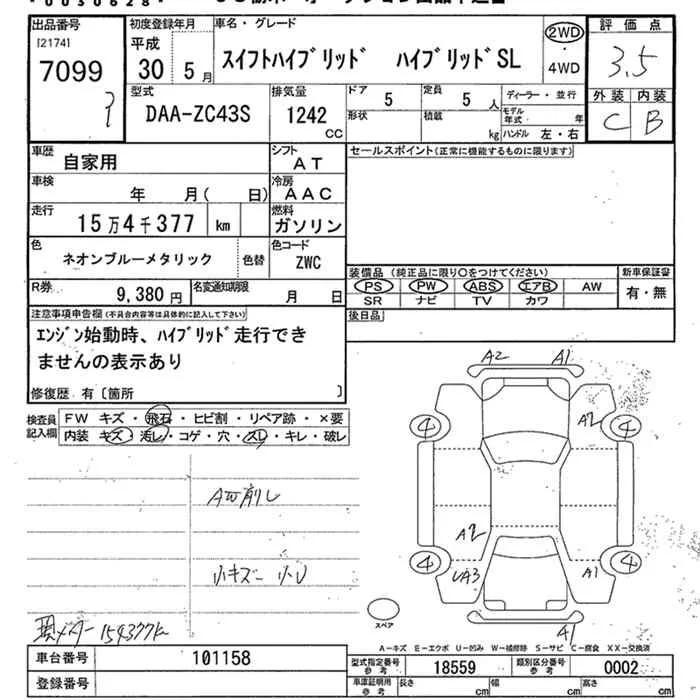 出品番号
[2174]
7099
初度登録年月
平成
30 5月
車名・グレード
スイフトハイブリッド ハイブリッドSL
2WD
・
4WD
評価点
3.5
外装 内装
C B
型式
DAA-ZC43S
排気量
1242
CC
ドア
5
定員
5 人
ディーラー・並行
形状
積載
kg
モデル年式 年
ハンドル 左・右
車歴
自家用
シフト
AT
セールスポイント(正常に機能するものに限ります)
車検
年 月( 日)
冷房
AAC
走行
15万4千377 km
燃料
ガソリン
色
ネオンブルーメタリック
色替
色コード
ZWC
装備品(純正品に限り○をつけてください)
新車保証書
PS PW ABS エアB AW
有・無
SR ナビ TV カワ
R券
9,380円
名変通知期限
月 日
後日品
注意事項申告欄(不具合内容等は具体的に記入して下さい)
エンジン始動時、ハイブリッド走行でき
ませんの表示あり
修復歴 有〔箇所 〕
検査員
記入欄
FW キズ・飛石・ヒビ割・リペア跡・×要
内装 キズ・汚レ・コゲ・穴・スレ・キレ・破レ
A2 A1
A2
4 4
AW削レ
A2
小キズ 小U
4 UA3 A1 4
現メーター154377k
スペア
A1
A-キズ E-エクボ U-凹み W-補修跡 S-サビ C-腐食 XX-交換済
車台番号
101158
型式指定番号
参考
18559
類別区分番号
参考
0002
登録番号
車庫証明用
参考
長さ cm
幅 cm
高さ cm